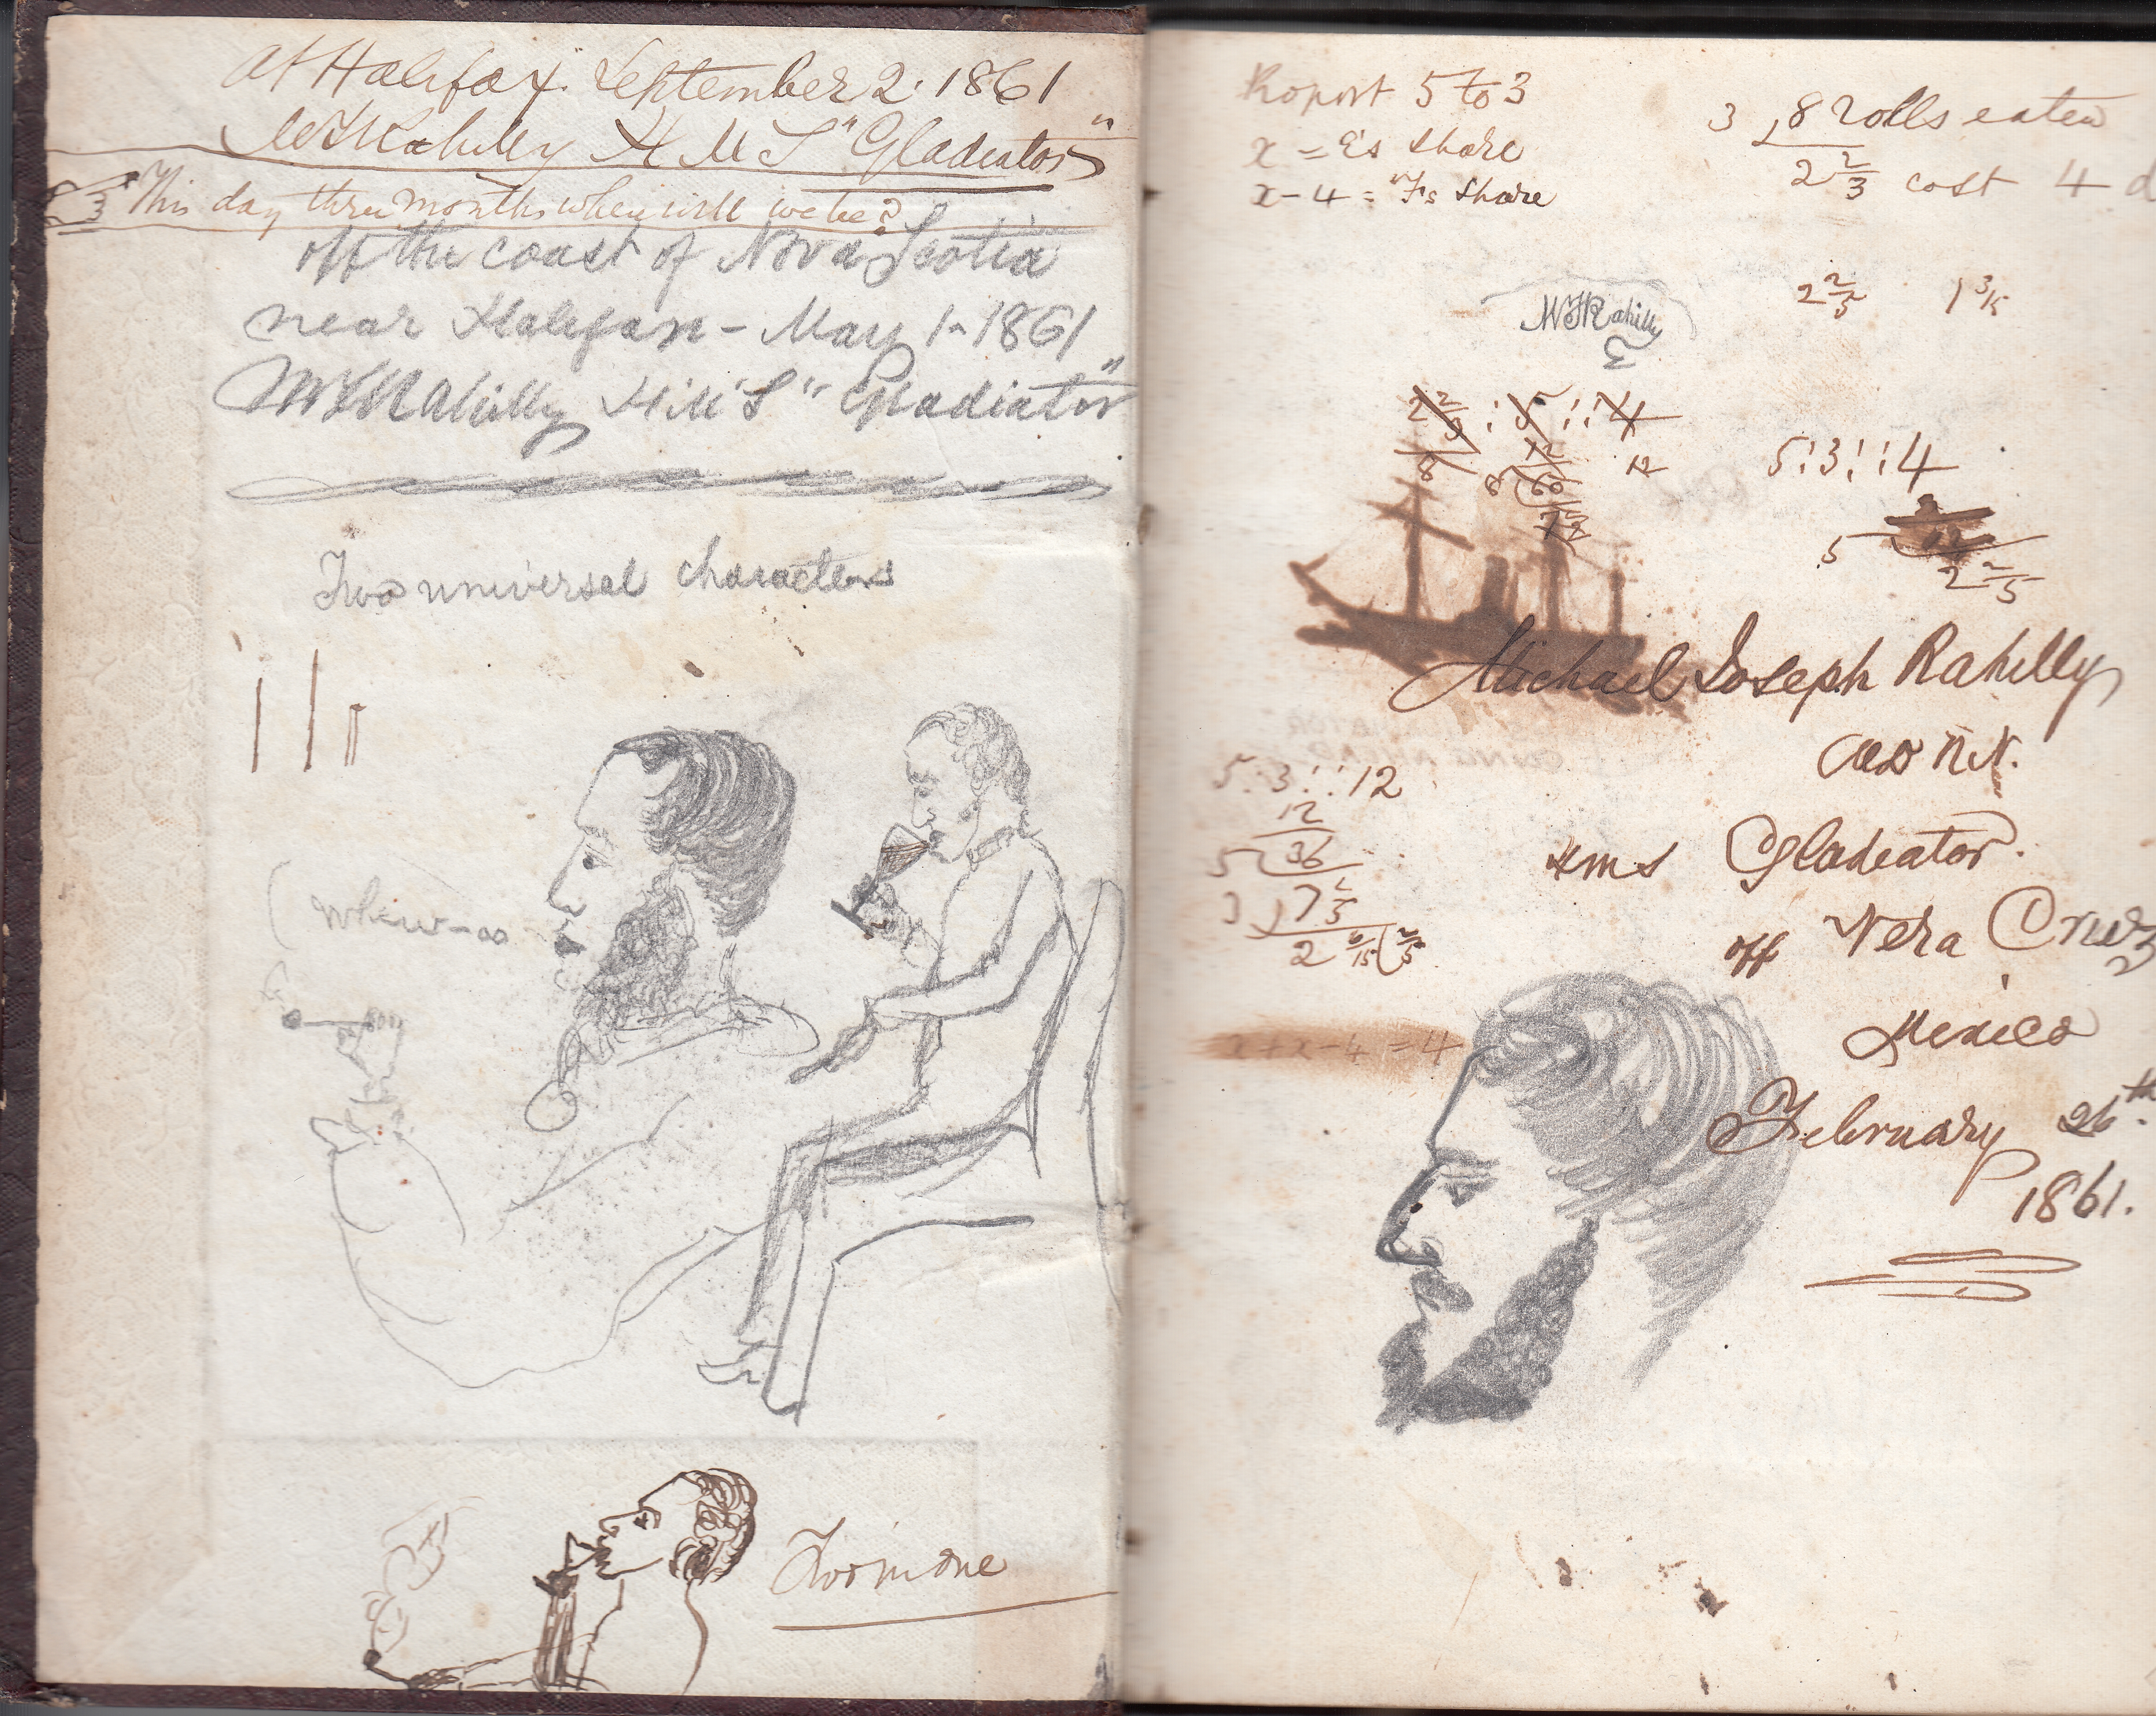 At Halifax. September 2. 1861
Rahilly H M S "Gladiator"
This day three months where will we be?
off the coast of Nova Scotia
near Halifax - May 1 - 1861
Rahilly H.M.S "Gladiator"
Two universal characters
Two in one
5 to 3
x = E's share
x - 4 = F's share
3 8 rolls eaten
2 2/3 cost 4 d
2 2/5 1 3/5
Rahilly
8 8 12
5:3::4
5
2 2/5
Michael Joseph Rahilly
R.N.
HMS Gladiator.
off Vera Cruz
Mexico
February 26th
1861.
5:3::12
12
5 36
3 7 1/5
2 6/15 2/5
x + x - 4 = 4